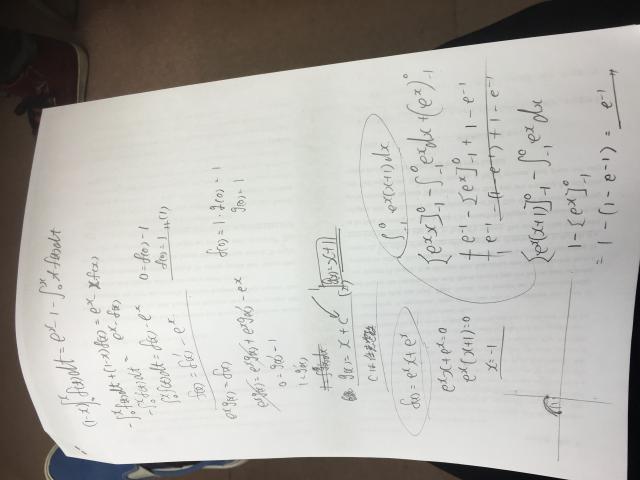 (1-x)∫₀ˣ f(t)dt = eˣ - 1 - ∫₀ˣ t f(t)dt
-∫₀ˣ f(t)dt + (1-x)f(x) = eˣ - x f(x)
-∫₀ˣ f(t)dt = eˣ - f(x)
∫₀ˣ f(t)dt = f(x) - eˣ
0 = f(0) - 1
f(0) = 1 (1)
f(x) = f'(x) - eˣ
eˣg(x) = f(x)
f(0) = 1·g(0) = 1
g(0) = 1
eˣg(x) = eˣg(x) + eˣg'(x) - eˣ
0 = g'(x) - 1
1 = g'(x)
g(x) = x + C
g(x) = x+1
(2)
f(x) = eˣx + eˣ
eˣx + eˣ = 0
eˣ(x+1) = 0
x = -1
∫₋₁⁰ eˣ(x+1)dx
[eˣx]₋₁⁰ - ∫₋₁⁰ eˣdx + (eˣ)₋₁⁰
e⁻¹ - [eˣ]₋₁⁰ + 1 - e⁻¹
e⁻¹ - (1 - e⁻¹) + 1 - e⁻¹
[eˣ(x+1)]₋₁⁰ - ∫₋₁⁰ eˣdx
1 - [eˣ]₋₁⁰
= 1 - (1 - e⁻¹) = e⁻¹